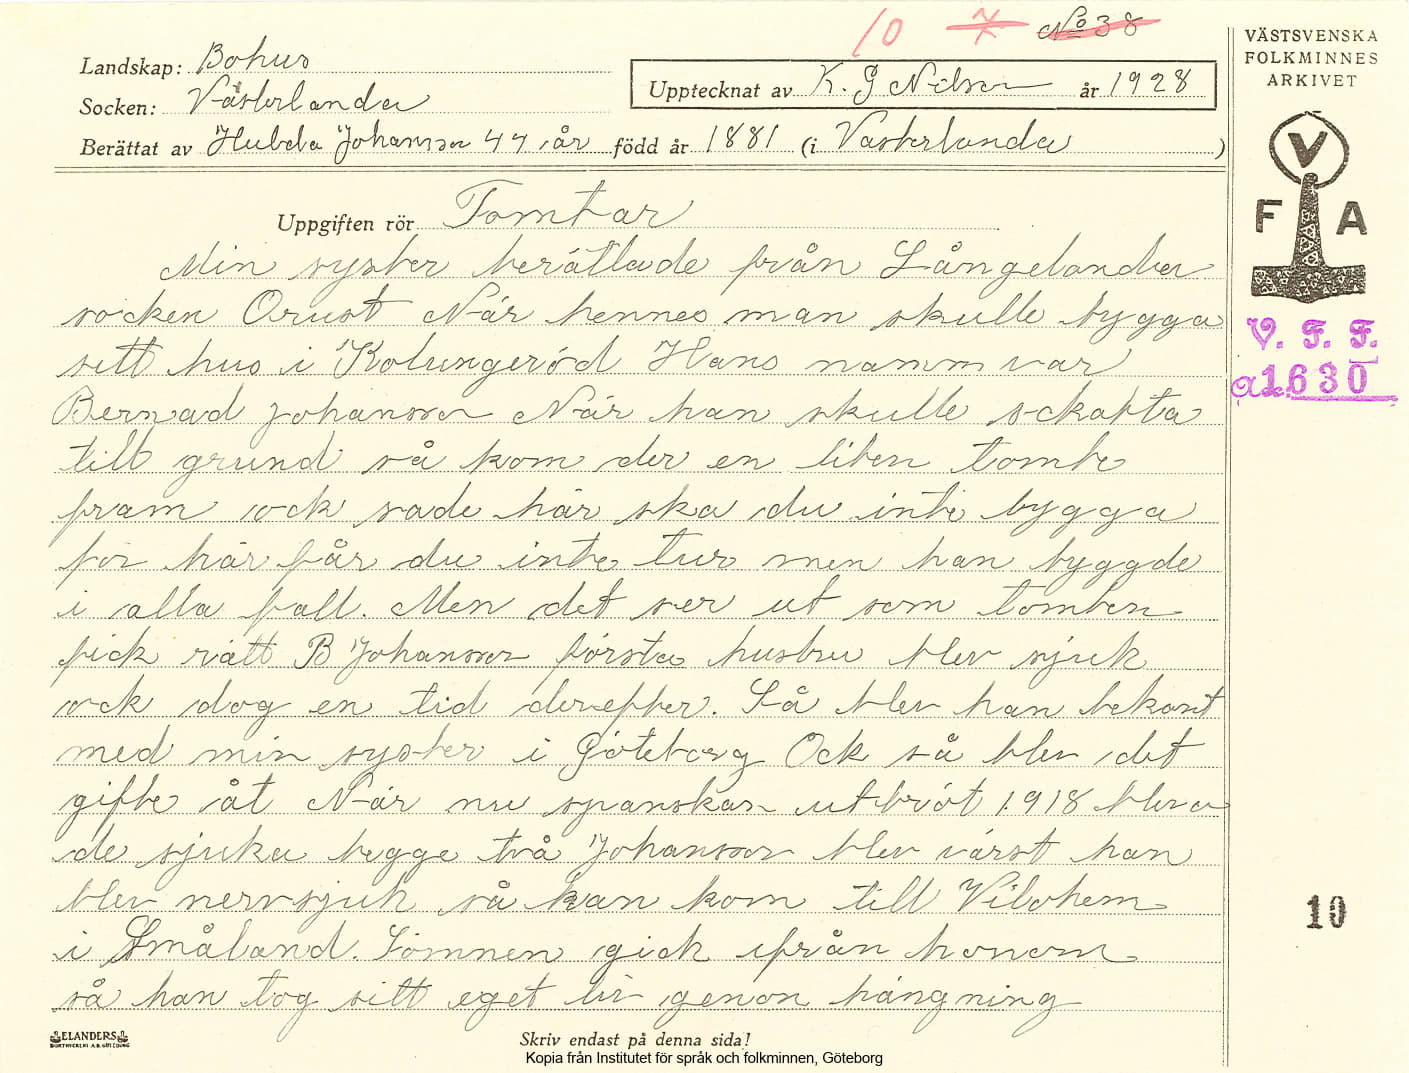 10 7 No 38
VÄSTSVENSKA
FOLKMINNES
ARKIVET
Landskap: Bohus
Upptecknat av K. G Nilson år 1928
Socken: Västerlanda
Berättat av Hulda Johanson 47 år född år 1881 (i Västerlanda )
V
F A
Uppgiften rör Tomtar
Min syster berättade från Långelanda
socken Orust När hennes man skulle bygga
sitt hus i Kolungeröd Hans namm var
Bernad Johansson När han skulle sckafta
till grund så kom der en liten tomte
fram ock sade här ska du inte bygga
för här får du inte tur men han byggde
i alla fall. Men det ser ut som tomten
fick rätt B Johansson första hustru blev sjuk
ock dog en tid derefter. Så blev han bekant
med min syster i Göteborg Ock så blev det
gifte åt När nu spanskan utbröt 1918 bleva
de sjuka begge två Johansson blev värst han
blev nervsjuk så han kom till Vilohem
i Småland. Sömnen gick ifrån honom
så han tog sitt eget liv genon hängning
V. F. F.
a1630
10
ELANDERS
BOKTRYCKERI A.B. GÖTEBORG
Skriv endast på denna sida!
Kopia från Institutet för språk och folkminnen, Göteborg